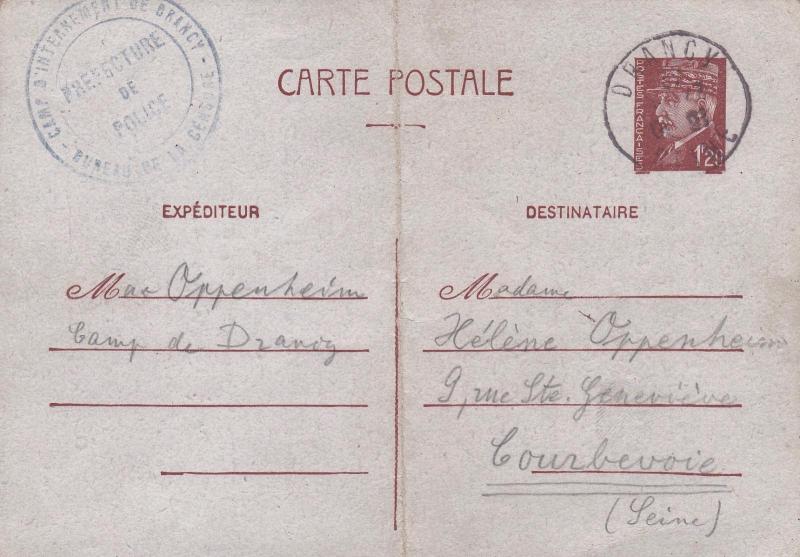 CAMP D'INTERNEMENT DE DRANCY - BUREAU DE LA CENSURE -
PREFECTURE
DE
POLICE
CARTE POSTALE
DRANCY
POSTES FRANÇAISES
1,20
EXPÉDITEUR
Max Oppenheim
Camp de Drancy
DESTINATAIRE
Madame
Hélène Oppenheim
9, rue Ste. Geneviève
Courbevoie
(Seine)